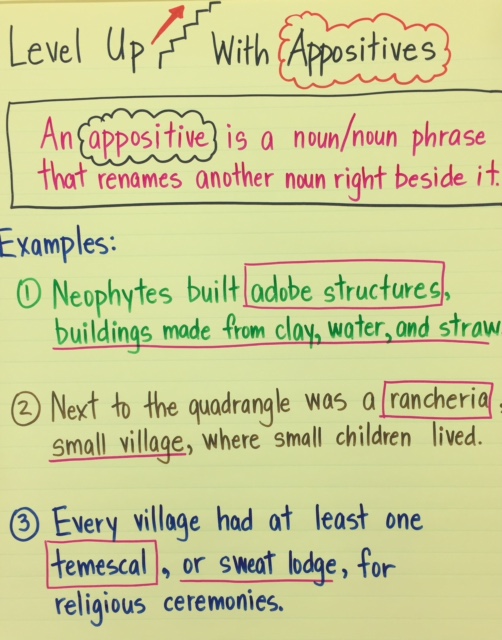 Level Up With Appositives
An appositive is a noun/noun phrase
that renames another noun right beside it.
Examples:
① Neophytes built adobe structures,
buildings made from clay, water, and straw
② Next to the quadrangle was a rancheria,
small village, where small children lived.
③ Every village had at least one
temescal, or sweat lodge, for
religious ceremonies.